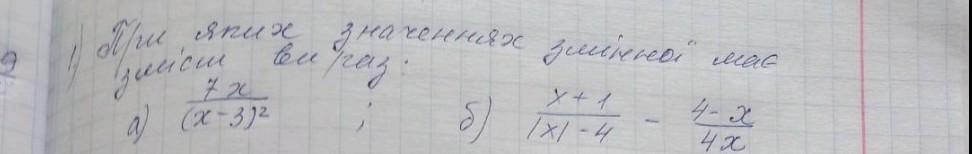 9 1) При яких значеннях змінної має
зміст вираз:
а) 7x/(x-3)² ; б) x+1/|x|-4 - 4-x/4x